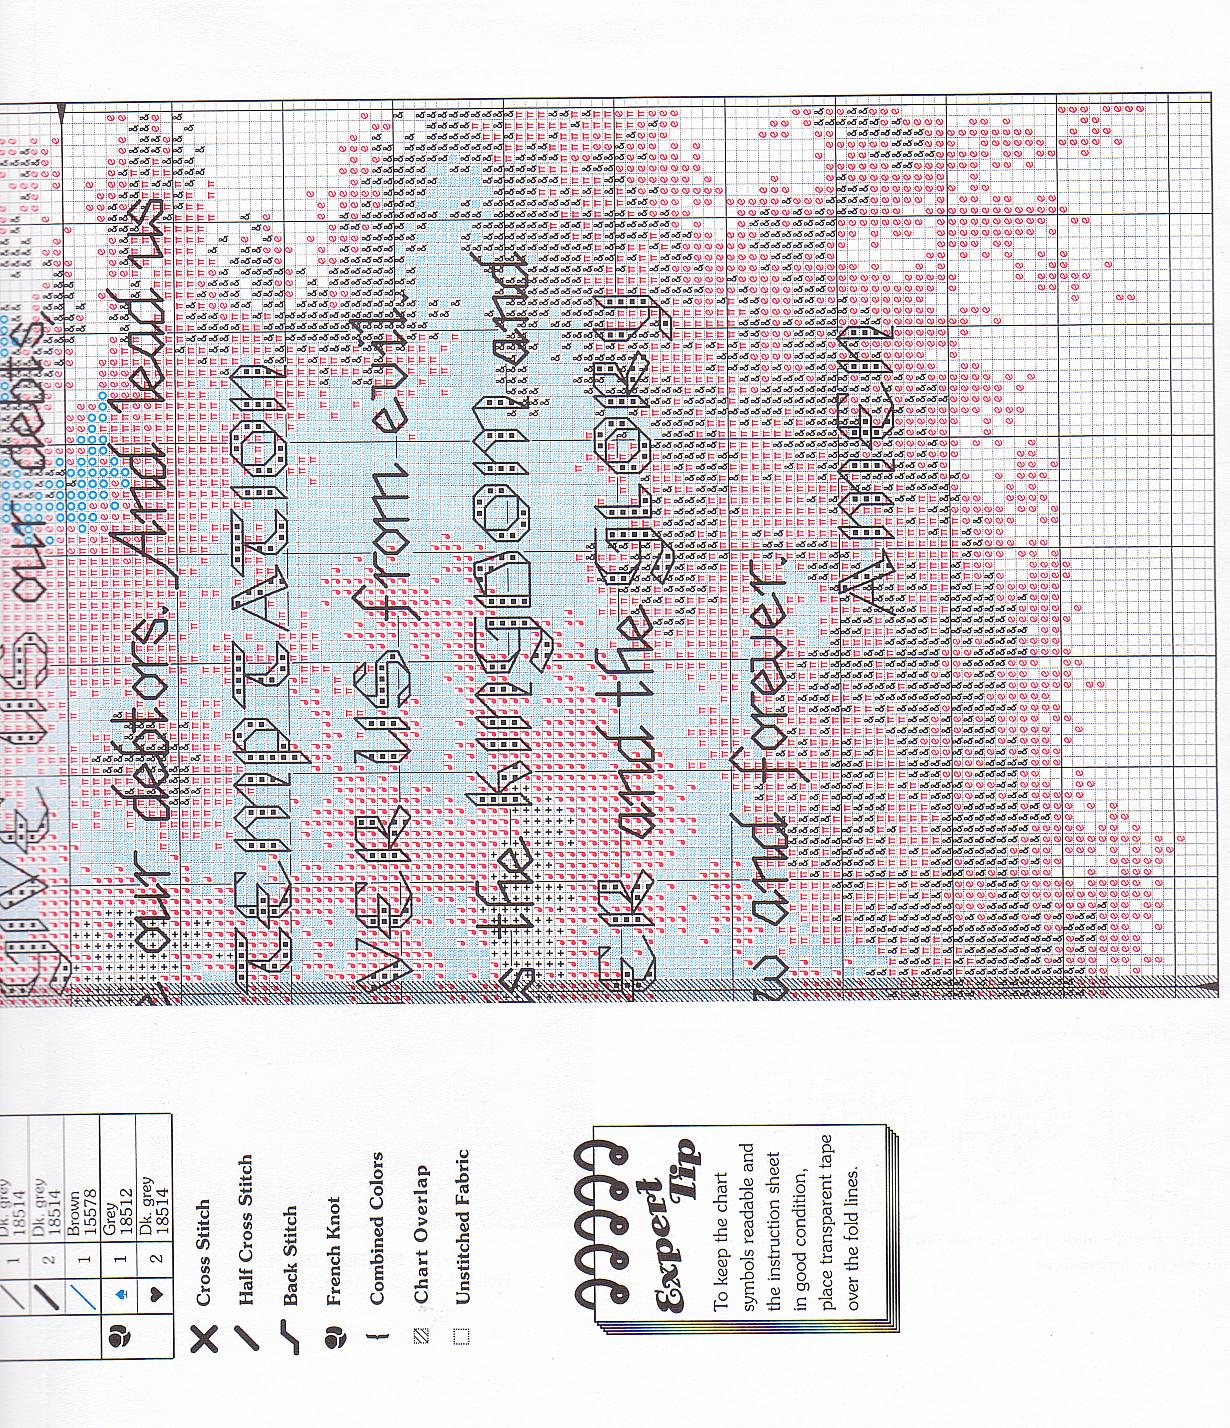 GIVE US our debts,
r our debtors. And lead us
TEMPTATION
VER US from evil.
s the KINGDOM and
ER and the GLORY
w and forever.
AMEN
Dk. grey
1 18514
2 Dk. grey
18514
1 Brown
15578
1 Grey
18512
2 Dk. grey
18514
Cross Stitch
Half Cross Stitch
Back Stitch
French Knot
Combined Colors
Chart Overlap
Unstitched Fabric
Expert
Tip
To keep the chart
symbols readable and
the instruction sheet
in good condition,
place transparent tape
over the fold lines.